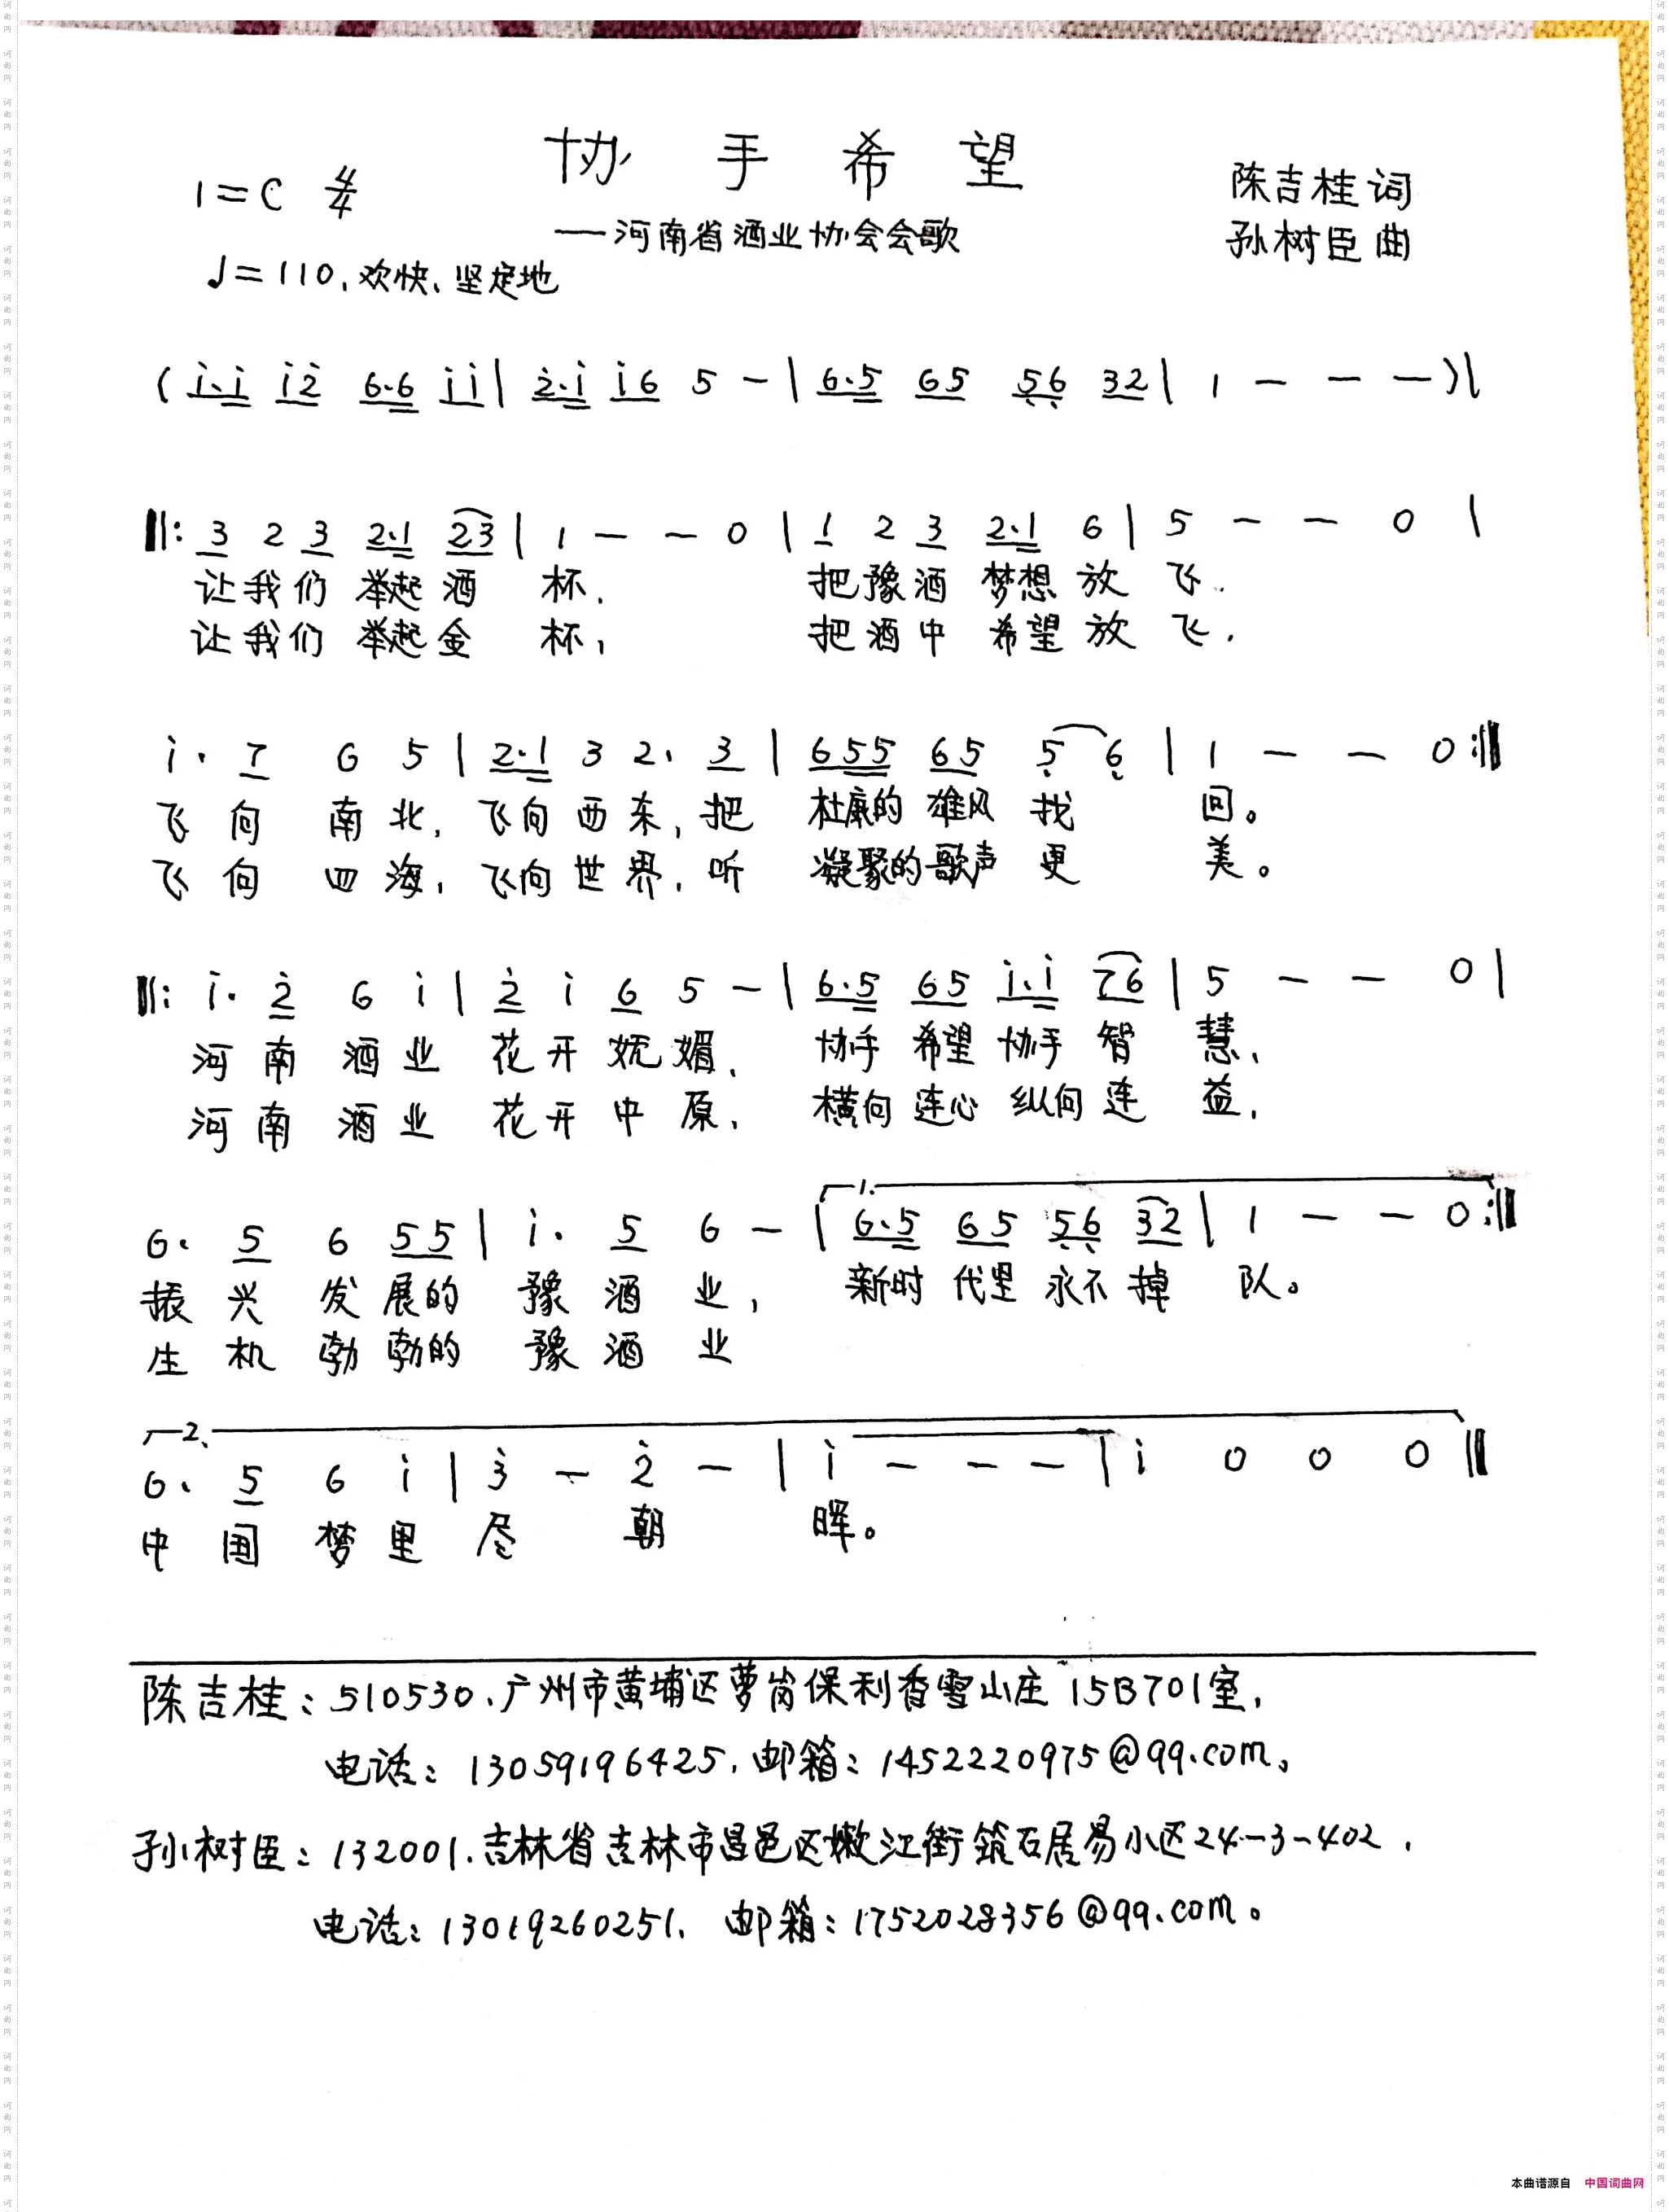 协手希望
1=C 4/4
陈吉桂词
——河南省酒业协会会歌
孙树臣曲
♩=110,欢快、坚定地
(i.i i2 6.6 ii | 2.i i6 5 - | 6.5 65 56 32 | 1 - - - )|
‖: 3 2 3 2.1 23 | 1 - - 0 | 1 2 3 2.1 6 | 5 - - 0 |
让我们 举起酒 杯, 把豫酒 梦想 放 飞.
让我们 举起金 杯, 把酒中 希望 放 飞.
i. 7 6 5 | 2.1 3 2. 3 | 655 65 5 6 | 1 - - 0 :‖
飞 向 南 北, 飞向 西 东, 把 杜康的 雄风 找 回。
飞 向 四 海, 飞向 世 界, 听 凝聚的 歌声 更 美。
‖: i. 2 6 i | 2 i 6 5 - | 6.5 65 i.i 76 | 5 - - 0 |
河 南 酒 业 花 开 妩 媚、 协手 希望 协手 智 慧、
河 南 酒 业 花 开 中 原, 横向 连心 纵向 连 益,
1.
6. 5 6 55 | i. 5 6 - | 6.5 65 56 32 | 1 - - 0 :‖
振 兴 发 展的 豫 酒 业, 新时 代里 永不 掉 队。
生 机 勃 勃的 豫 酒 业
2.
6. 5 6 i | 3 - 2 - | i - - - | i 0 0 0 ‖
中 国 梦 里 尽 朝 晖。
陈吉桂:510530、广州市黄埔区萝岗保利香雪山庄15B701室,
电话:13059196425, 邮箱:1452220975@qq.com。
孙树臣:132001.吉林省吉林市昌邑区嫩江街筑石居易小区24-3-402,
电话:13019260251, 邮箱:1752028356@qq.com。
本曲谱源自 中国词曲网